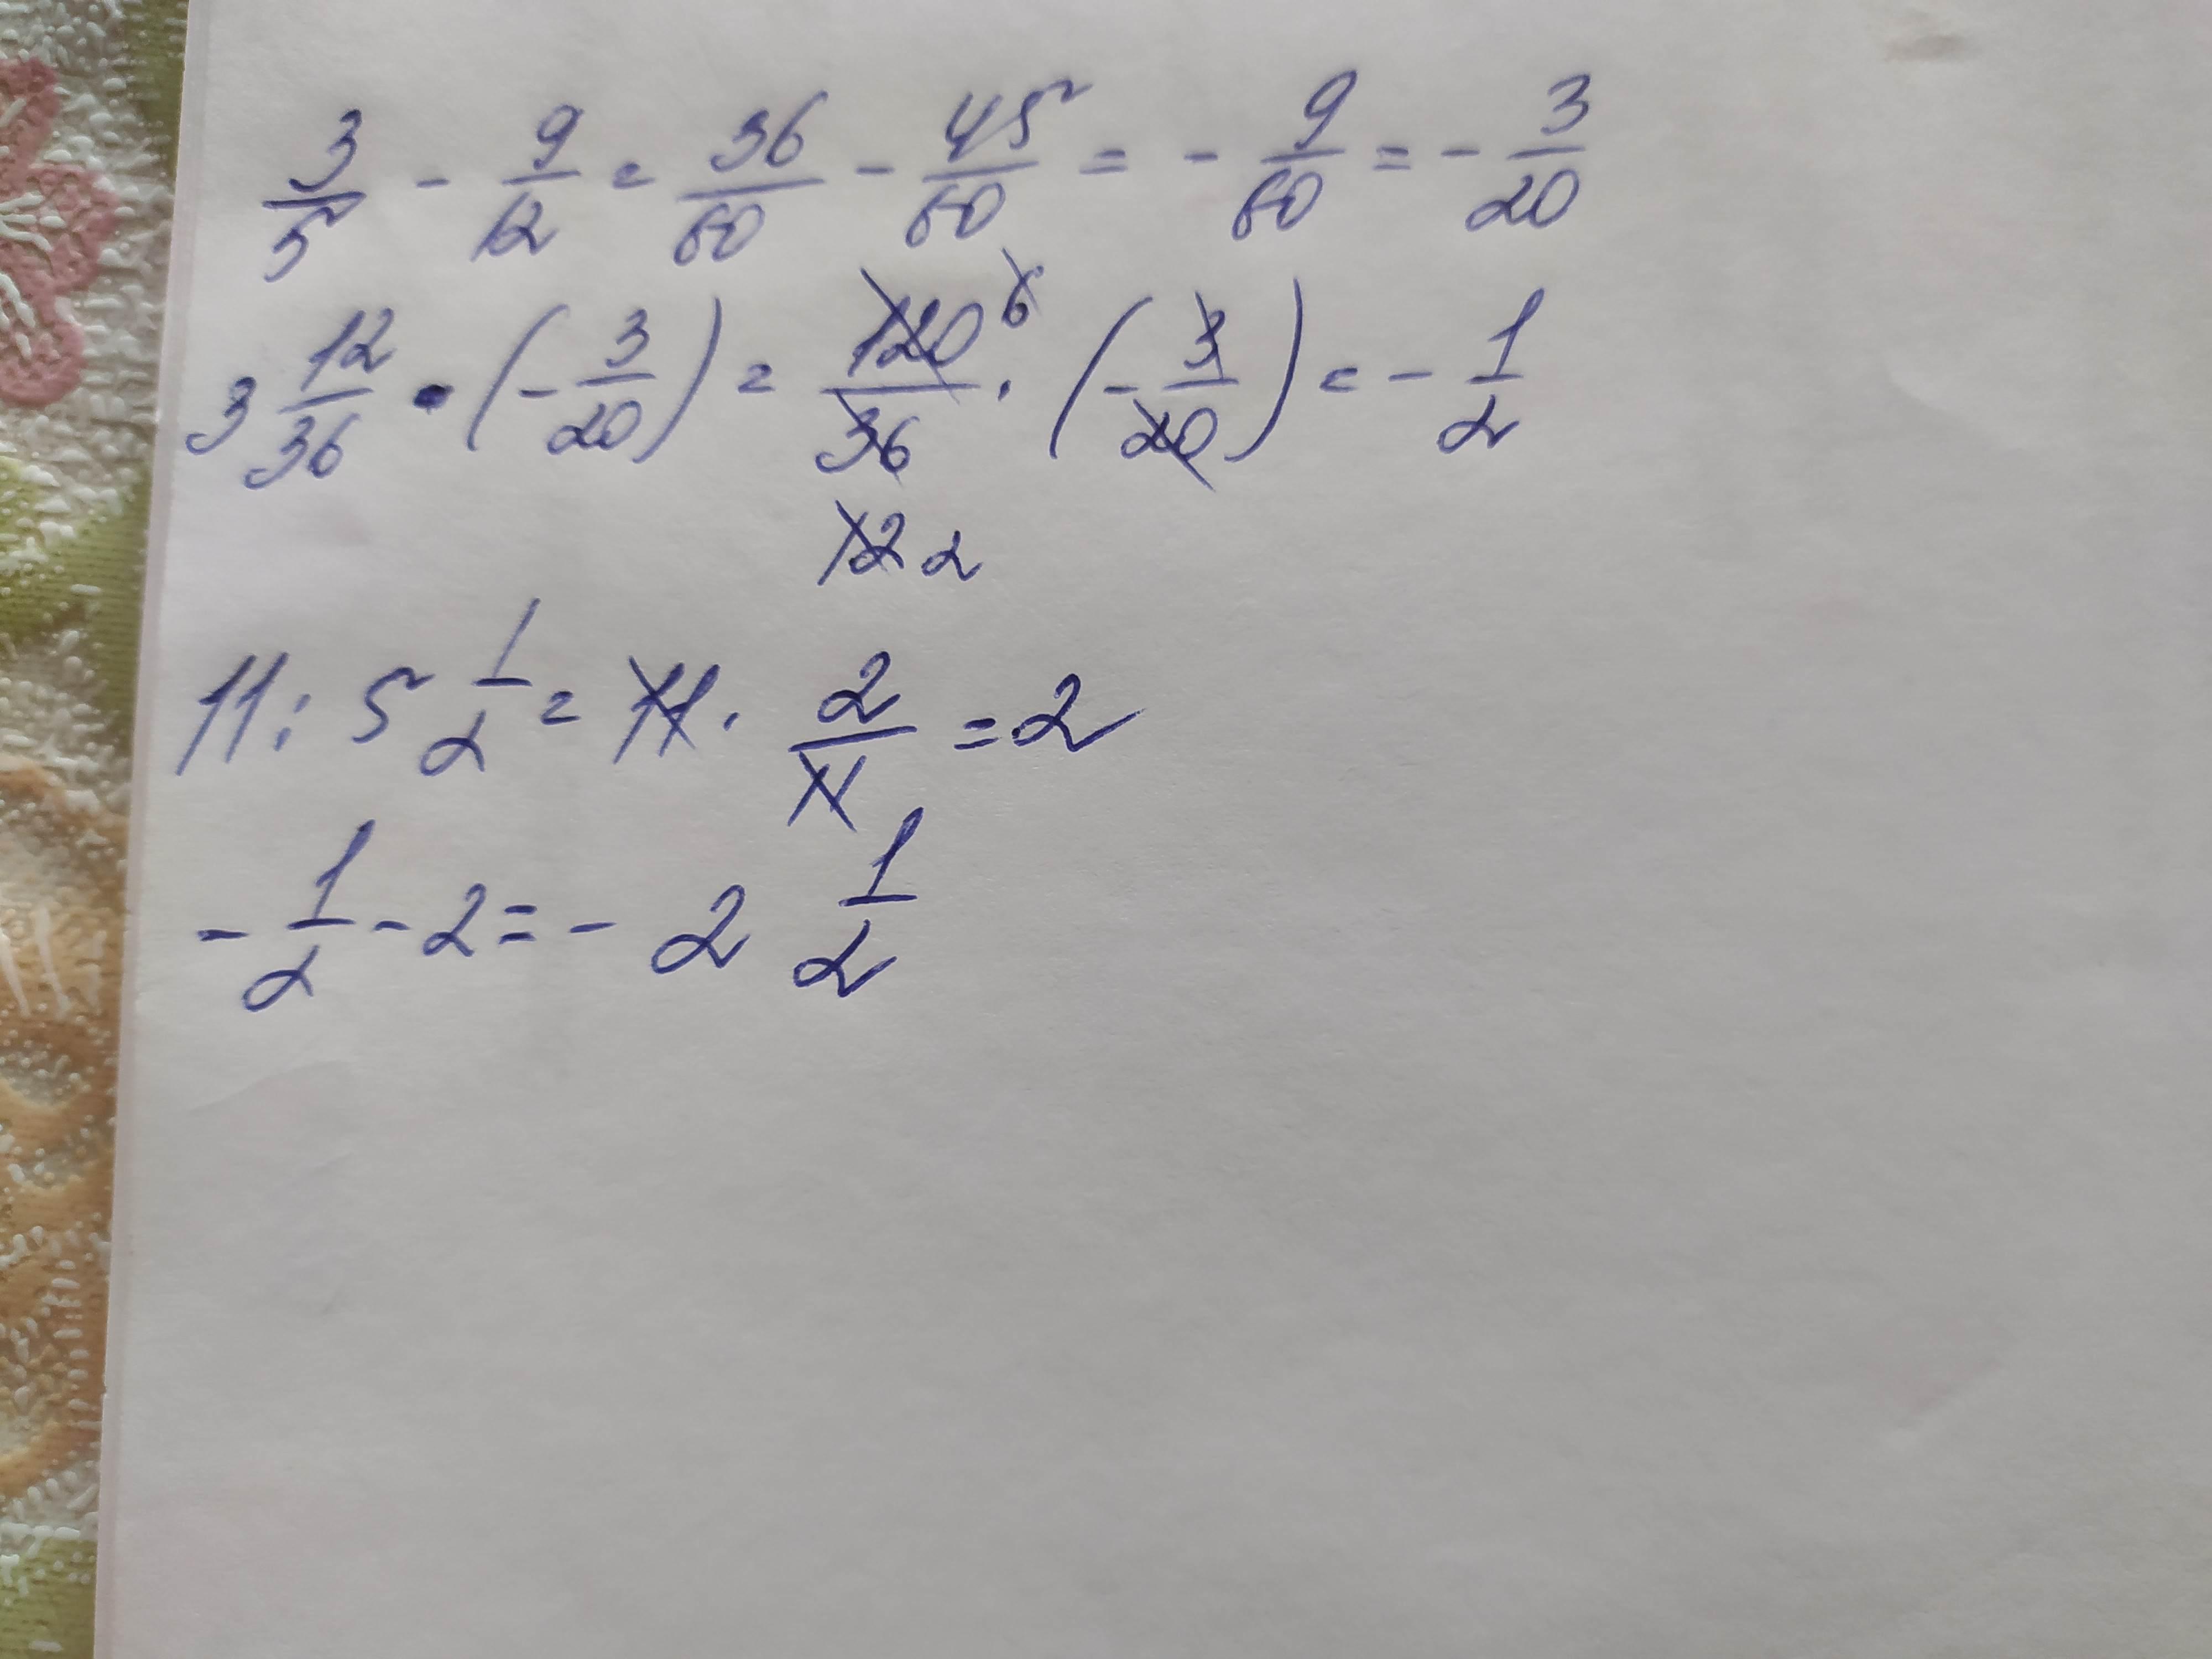 3/5 - 9/12 = 36/60 - 45/60 = - 9/60 = - 3/20
3 12/36 · (- 3/20) = 120 6/36 12 2 · (- 3/20) = - 1/2
11 : 5 1/2 = 11 · 2/11 = 2
- 1/2 - 2 = - 2 1/2